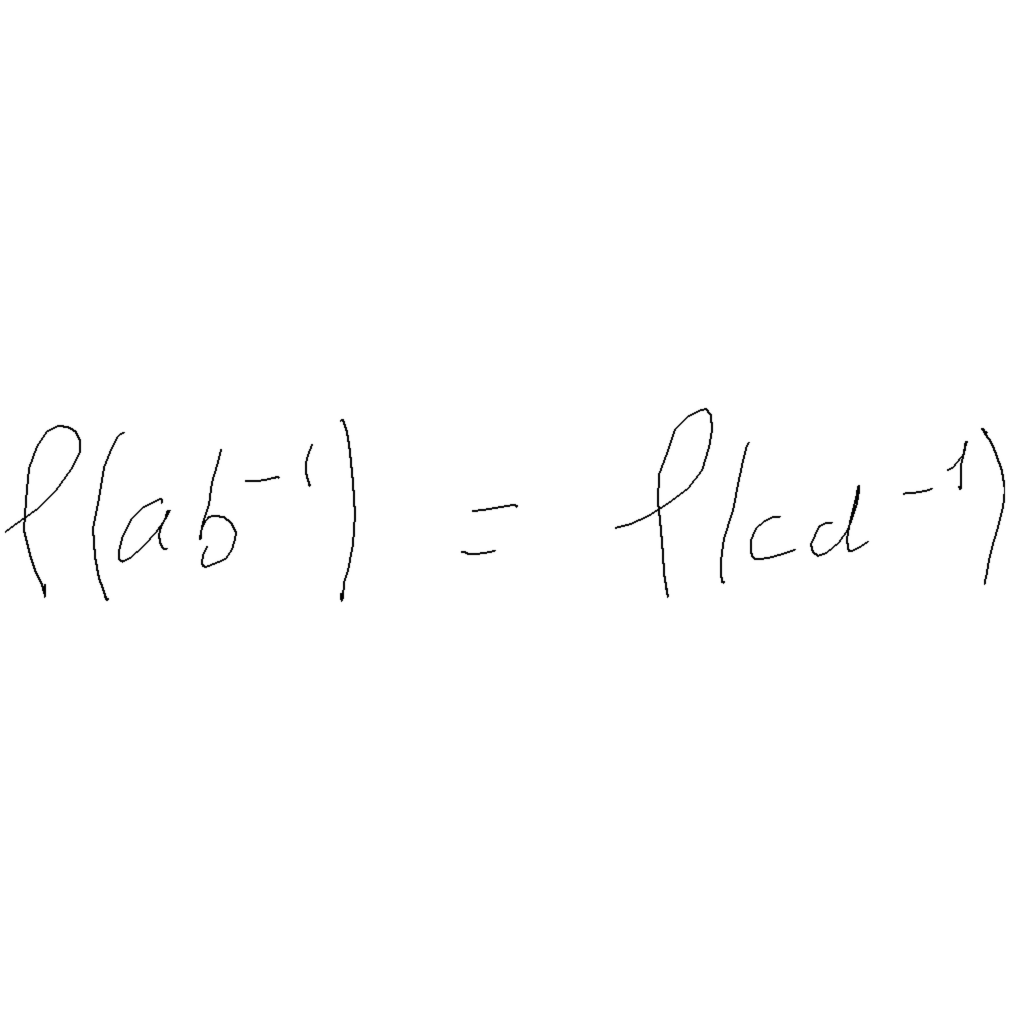 f(ab⁻¹) = f(cd⁻¹)